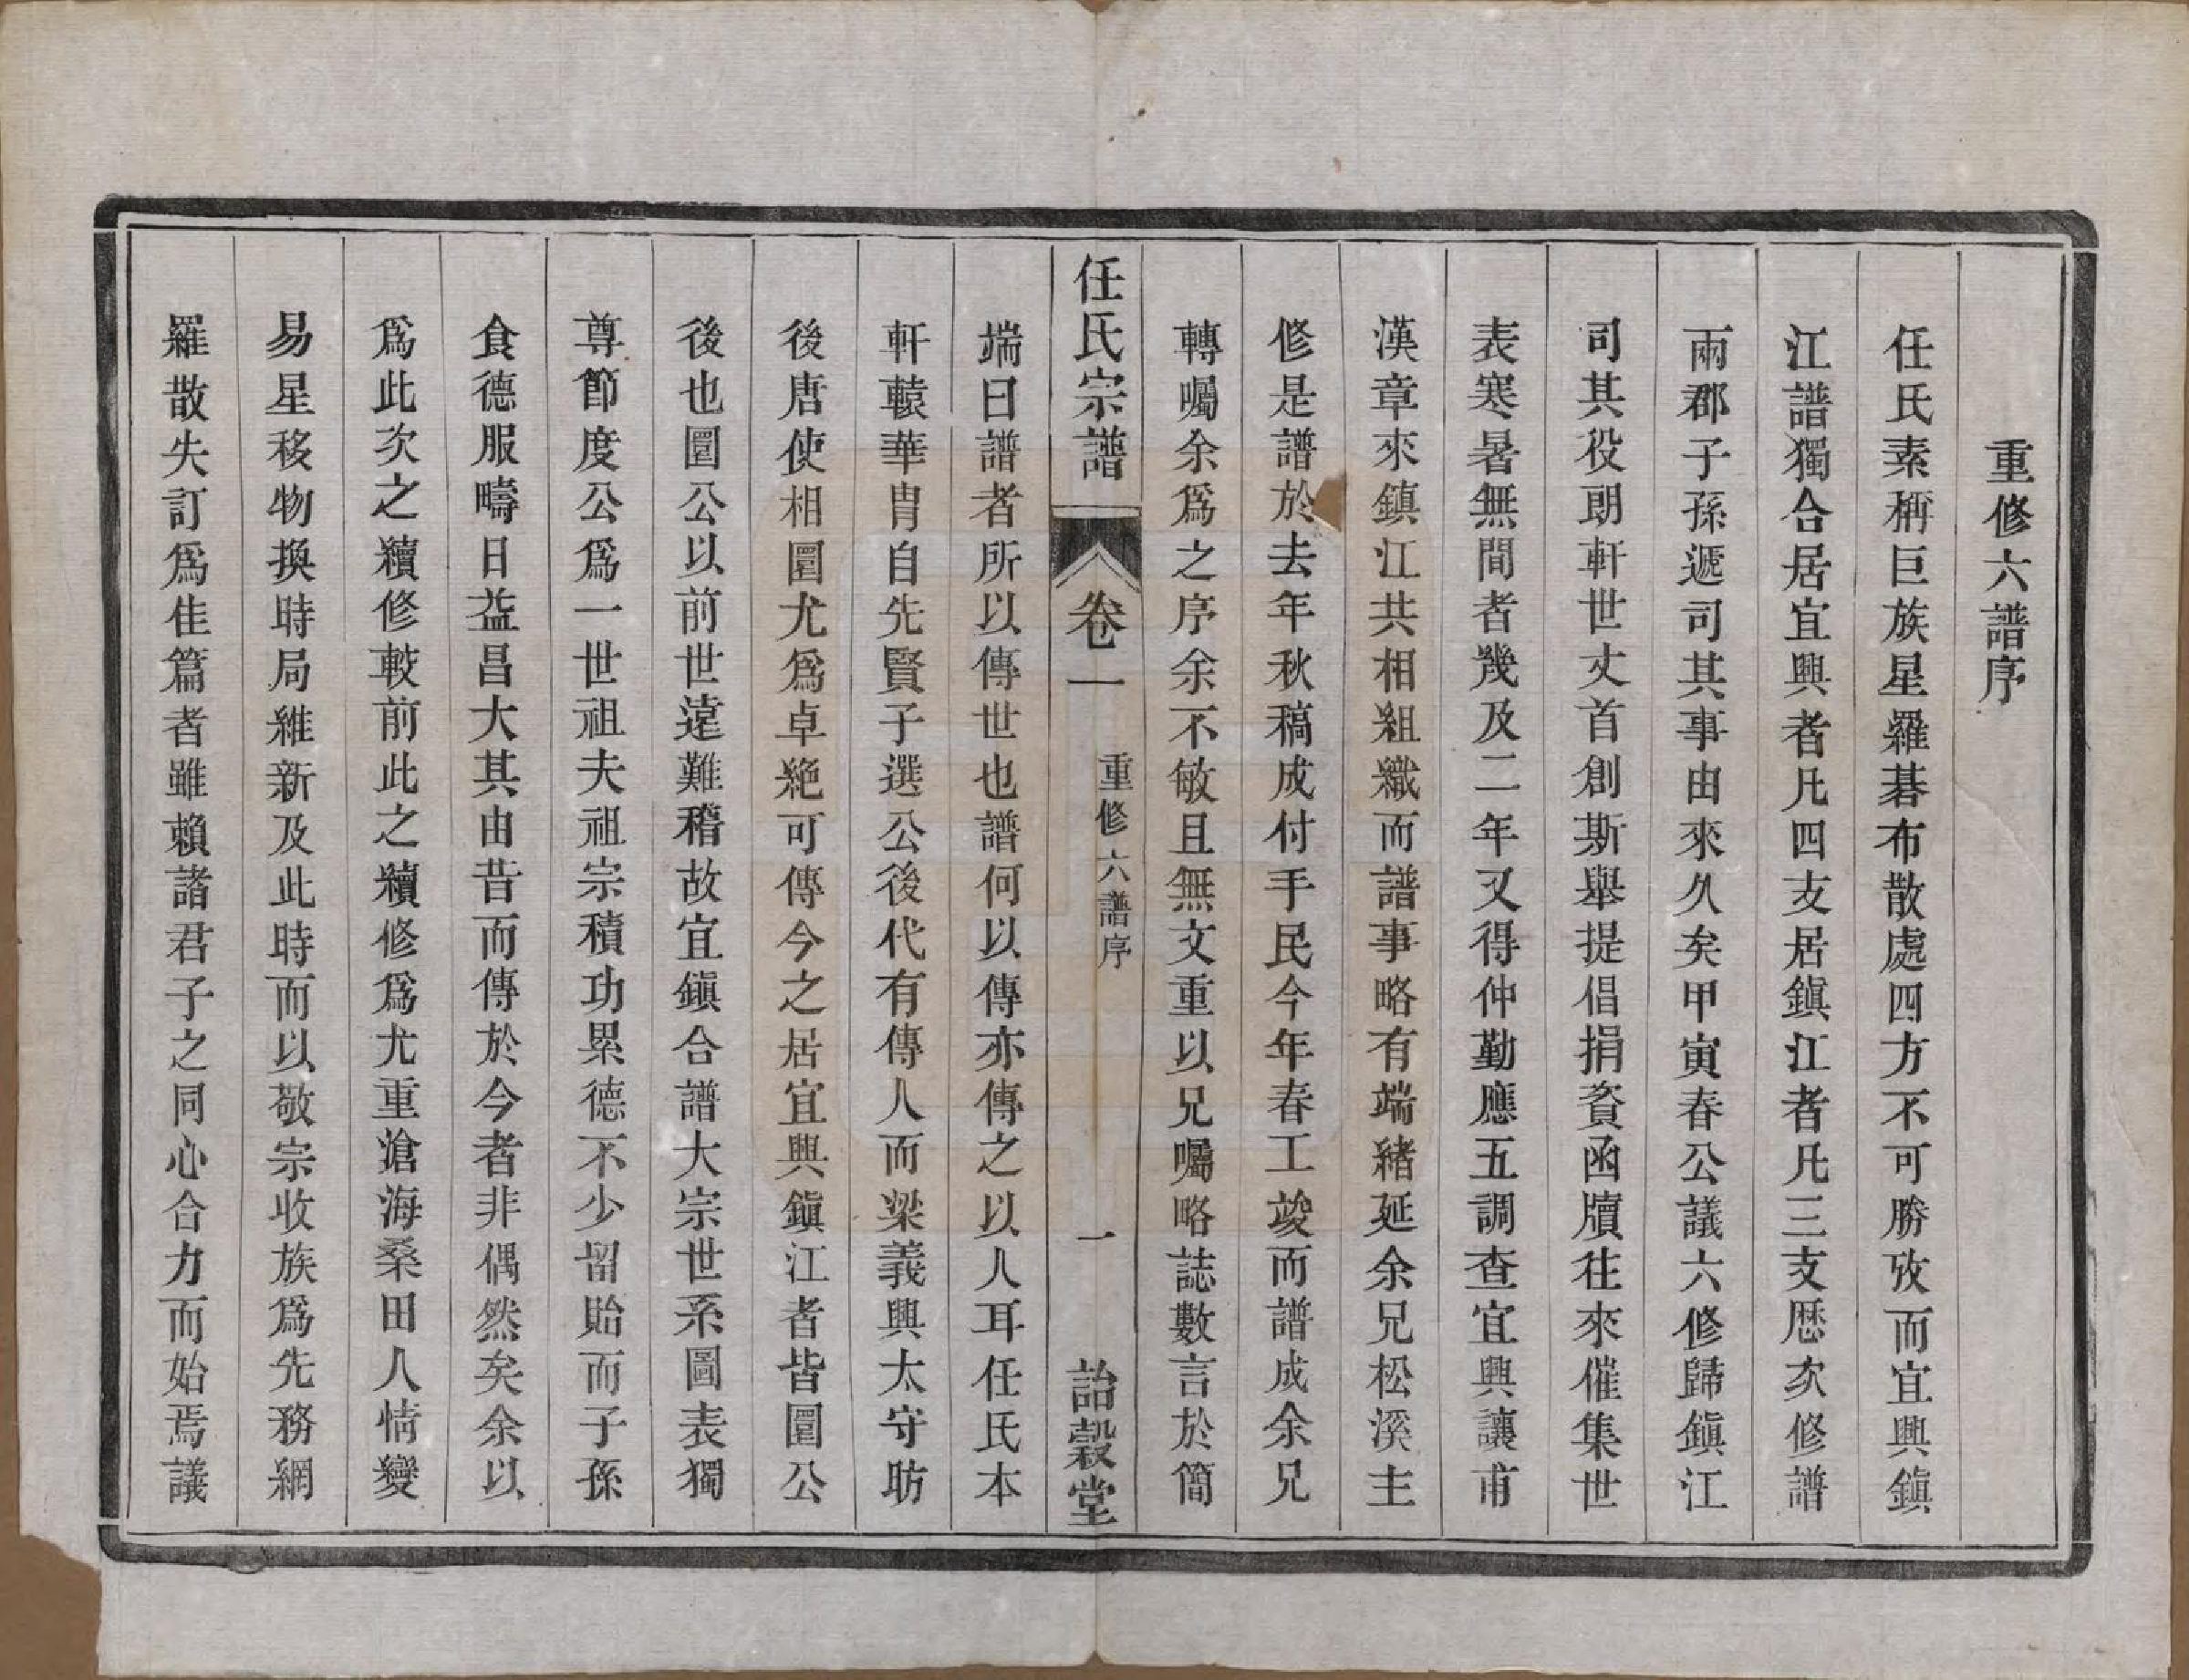 重修六譜序
任氏素稱巨族星羅碁布散處四方不可勝攷而宜興鎭
江譜獨合居宜興者凡四支居鎭江者凡三支歷次修譜
兩郡子孫遞司其事由來久矣甲寅春公議六修歸鎭江
司其役朗軒世丈首創斯舉提倡捐資函牘往來催集世
表寒暑無間者幾及二年又得仲勤應五調查宜興讓甫
漢章來鎭江共相組織而譜事略有端緒延余兄松溪主
修是譜於去年秋稿成付手民今年春工竣而譜成余兄
轉囑余爲之序余不敏且無文重以兄囑略誌數言於簡
任氏宗譜 卷一 重修六譜序 一 詒穀堂
端曰譜者所以傳世也譜何以傳亦傳之以人耳任氏本
軒轅華胄自先賢子選公後代有傳人而梁義興太守昉
後唐使相圜尤爲卓絕可傳今之居宜興鎭江者皆圜公
後也圜公以前世遠難稽故宜鎭合譜大宗世系圖表獨
尊節度公爲一世祖夫祖宗積功累德不少留貽而子孫
食德服疇日益昌大其由昔而傳於今者非偶然矣余以
爲此次之續修較前此之續修爲尤重滄海桑田人情變
易星移物換時局維新及此時而以敬宗收族爲先務網
羅散失訂爲佳篇者雖賴諸君子之同心合力而始焉議